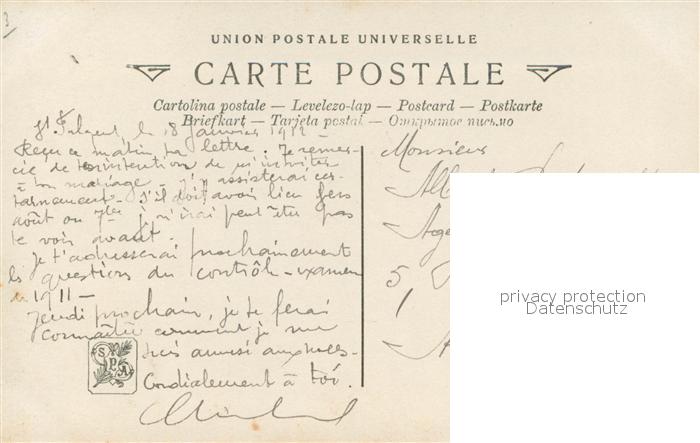 3
UNION POSTALE UNIVERSELLE
CARTE POSTALE
Cartolina postale — Levelezo-lap — Postcard — Postkarte
Briefkart — Tarjeta postal — Открытое письмо
le 18 Janvier 1912 —
Reçu ce matin ta lettre. Je remer-
cie de l'intention de m'inviter
à ton mariage. J'y assisterai cer-
tainement. S'il doit avoir lieu vers
août ou 7bre je n'irai peut être pas
te voir avant.
Je t'adresserai prochainement
les questions du contrôle-examen
de 1911 —
Jeudi prochain, je te ferai
connaître comment je me
suis amusé aux
Cordialement à toi.
SPA
Monsieur
Age
5,
privacy protection
Datenschutz